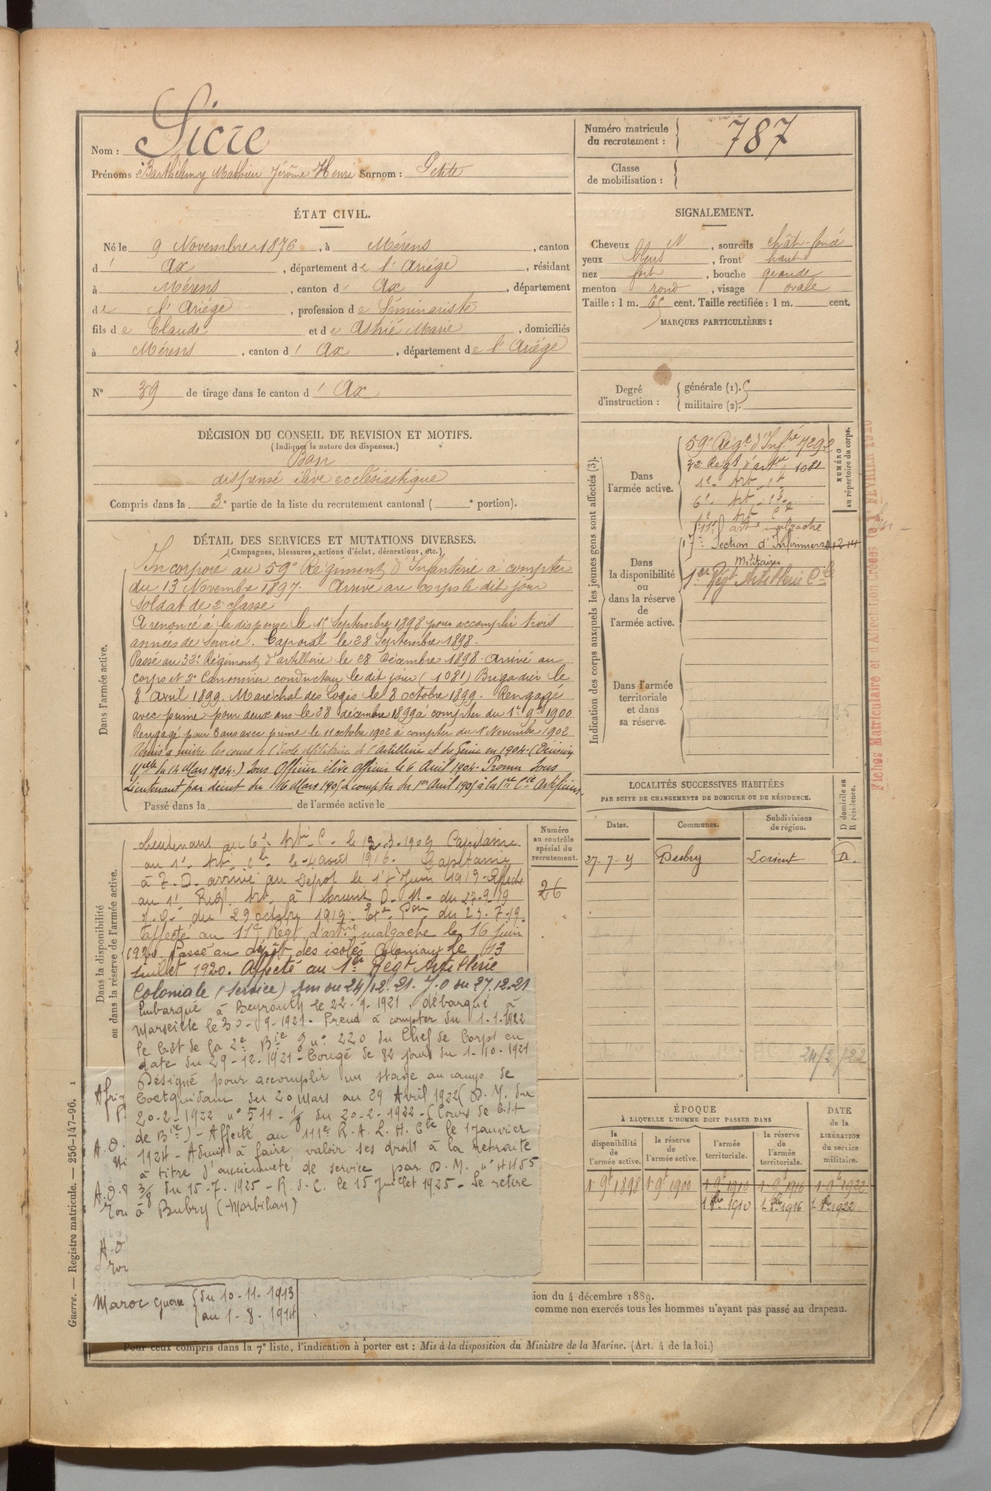 Nom : Sicre
Prénoms : Barthélemy Mathieu Jérôme Henri Surnom : Petito
Numéro matricule du recrutement : 787
Classe de mobilisation :
ÉTAT CIVIL.
Né le 9 Novembre 1876, à Mérens, canton
d' Ax, département de l'Ariége, résidant
à Mérens, canton d' Ax, département
de l'Ariége, profession de Séminariste
fils de Claude et de Astrié Marie, domiciliés
à Mérens, canton d' Ax, département de l'Ariége
N° 39 de tirage dans le canton d' Ax
SIGNALEMENT.
Cheveux N, sourcils chât-foncé
yeux bleus, front haut
nez fort, bouche grande
menton rond, visage ovale
Taille : 1 m. 65 cent. Taille rectifiée : 1 m. cent.
MARQUES PARTICULIÈRES :
Degré d'instruction : générale (1). militaire (2).
DÉCISION DU CONSEIL DE REVISION ET MOTIFS.
(Indiquer la nature des dispenses.)
Bon
dispensé élève ecclésiastique
Compris dans la 3e partie de la liste du recrutement cantonal ( e portion).
DÉTAIL DES SERVICES ET MUTATIONS DIVERSES.
(Campagnes, blessures, actions d'éclat, décorations, etc.)
Dans l'armée active.
Incorporé au 59e Régiment d'Infanterie à compter
du 13 Novembre 1897. Arrivé au corps le dit jour
soldat de 2e classe
A renoncé à la dispense le 1er Septembre 1898 pour accomplir trois
années de service. Caporal le 28 Septembre 1898.
Passé au 32e Régiment d'artillerie le 28 Décembre 1898. Arrivé au
corps et 2e Canonnier conducteur le dit jour (1081) Brigadier le
8 Avril 1899. Maréchal des Logis le 8 octobre 1899. Rengagé
avec prime pour deux ans le 28 décembre 1899 à compter du 1er 9bre 1900
Rengagé pour 3 ans avec prime le 11 octobre 1902 à compter du 1er Novembre 1902
Admis à suivre les cours à l'école Militaire de l'Artillerie et du Génie en 1904. (Décision
Mlle du 14 Mars 1904.) Sous Officier élève officier le 6 Avril 1904. Promu Sous
Lieutenant par décret du 16 Mars 1905 à compter du 1er Avril 1905 à la 1re Cie Artificiers
Passé dans la de l'armée active le
Dans la disponibilité ou dans la réserve de l'armée active.
Lieutenant au 6e Artie C. le 12.3.1909 Capitaine
au 1er Art. Cle le 4 août 1916. Capitaine
à T.D. arrivé au Dépôt le 1er Juin 1919
au 1er Régt Art. à Lorient
du 29 octobre 1919
affecté au 11e Régt d'artie malgache le 16 Juin
1920. Passé au dépôt des isolés Coloniaux le 13
Juillet 1920. Affecté au 1er Régt Artillerie
Coloniale (service) Dm du 24/12.21. J.O du 27.12.21
Embarqué à Beyrouth le 22-9-1921, débarqué à
Marseille le 30-9-1921. Prend à compter du 1-1-1922
le Cdt de la 2e Bie n° 220 du Chef de Corps en
date du 29-12-1921 - Congé de 82 jours du 1-10-1921
Désigné pour accomplir un stage au camp de
Coetquidan du 20 Mars au 29 Avril 1922 (D.M. du
20-2-1922 n° 511- du 20-2-1922 - (Cours de Cdt
de Bie) - Affecté au 111e R.A.L.H. Cle le 1 Janvier
1924 - Admis à faire valoir ses droit à la Retraite
à titre d'ancienneté de service par D.M. n° 4455
3/8 du 15-7-1925 - R.S.C. le 15 juillet 1925 - Se retire
à Bubry (Morbihan)
Maroc Guerre { du 10-11-1913
au 1-8-1914
Numéro au contrôle spécial du recrutement.
26
Indication des corps auxquels les jeunes gens sont affectés (3).
NUMÉRO au répertoire du corps.
Dans l'armée active.
59e Régt d'Infie 7292
32e Régt d'artie 1081
11e art. malgache
17e Section d'Infirmiers
Militaires
Dans la disponibilité ou dans la réserve de l'armée active.
1er Régt Artillerie Cle
Dans l'armée territoriale et dans sa réserve.
LOCALITÉS SUCCESSIVES HABITÉES
PAR SUITE DE CHANGEMENTS DE DOMICILE OU DE RÉSIDENCE.
Dates. Communes. Subdivisions de région. D domicile ou R résidence.
Bubry Lorient D.
24/2/22
ÉPOQUE
À LAQUELLE L'HOMME DOIT PASSER DANS
DATE de la LIBÉRATION du service militaire.
la disponibilité de l'armée active. la réserve de l'armée active. l'armée territoriale. la réserve de l'armée territoriale.
1 9e 1898 1 9e 1900 1 9e 1910 1 9e 1916 1 9e 1922
1 8bre 1910 1 8bre 1916 1 8bre 1922
ion du 4 décembre 1889.
comme non exercés tous les hommes n'ayant pas passé au drapeau.
Pour ceux compris dans la 7e liste, l'indication à porter est : Mis à la disposition du Ministre de la Marine. (Art. 4 de la loi.)
Guerre. — Registre matricule. — 256-147-96.